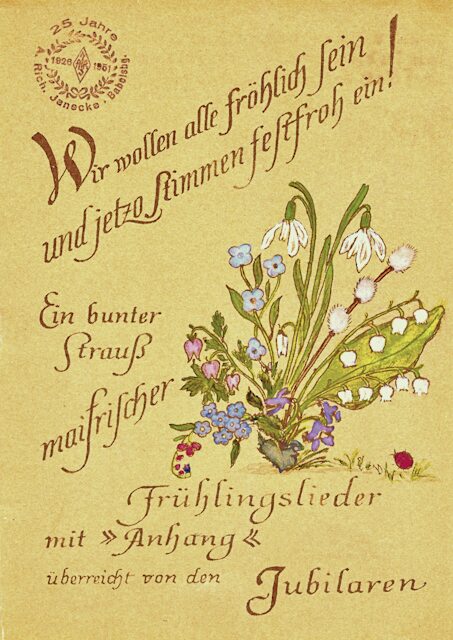 25 Jahre
1926 1951
A. Rich. Janecke · Babelsbg.
Wir wollen alle fröhlich sein
und jetzo stimmen festfroh ein!
Ein bunter
Strauß
maifrischer
Frühlingslieder
mit »Anhang«
überreicht von den Jubilaren